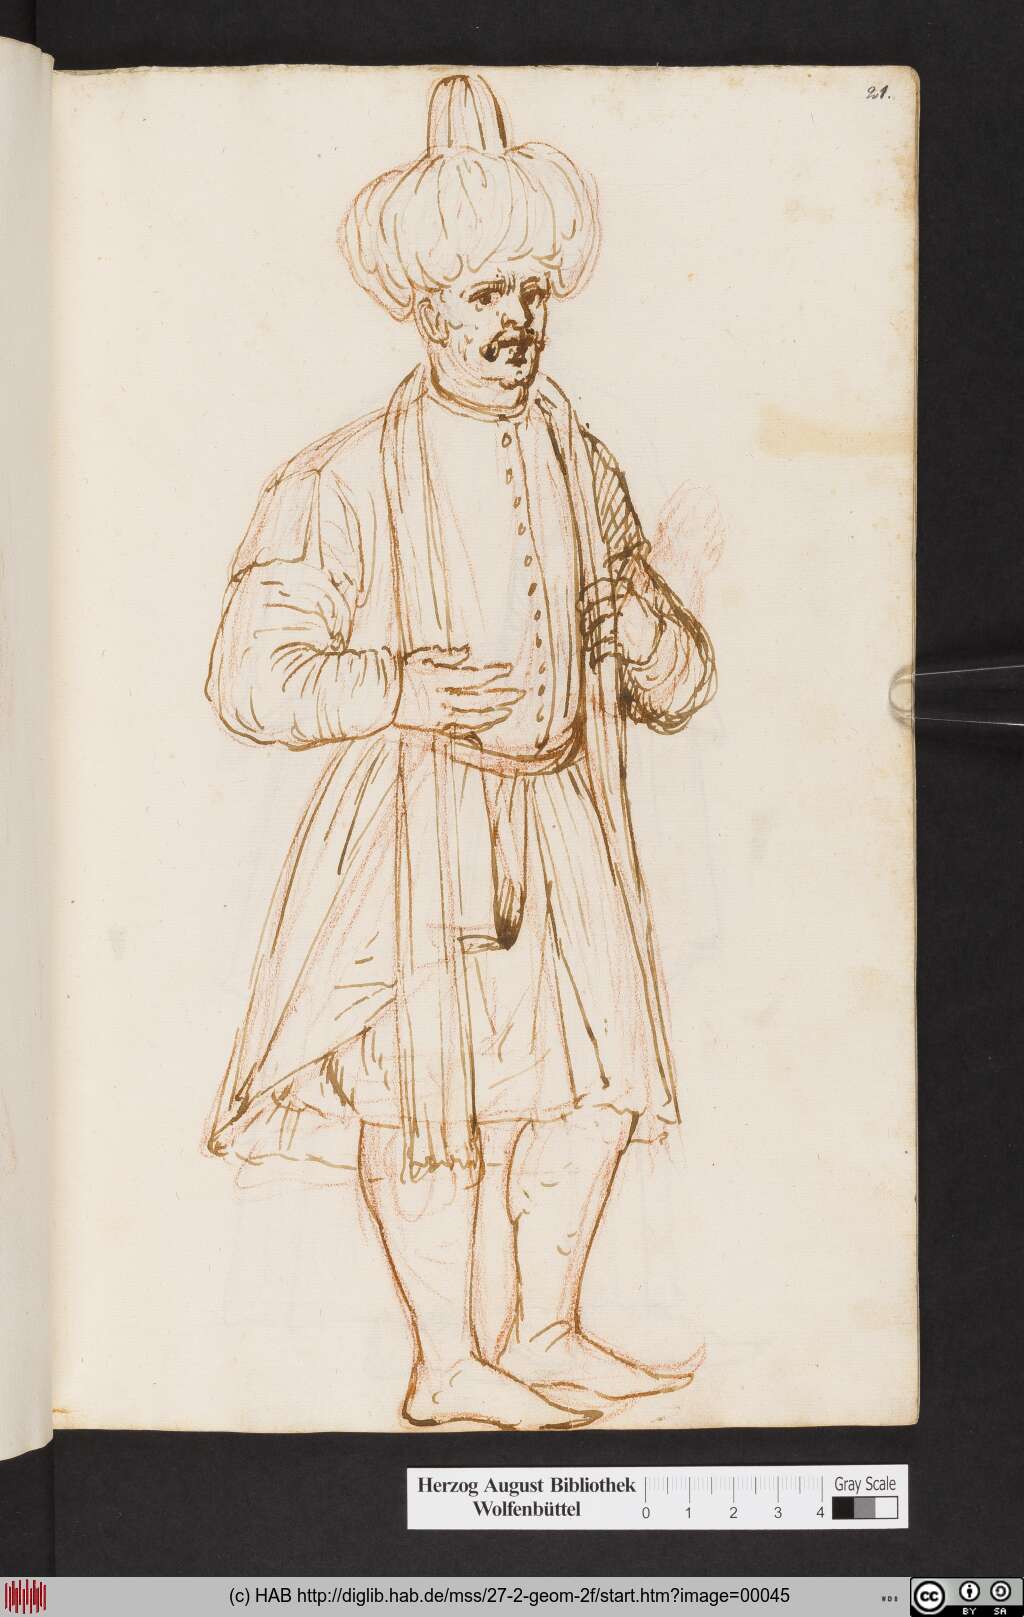 21.
Herzog August Bibliothek
Wolfenbüttel
0 1 2 3 4
Gray Scale
(c) HAB http://diglib.hab.de/mss/27-2-geom-2f/start.htm?image=00045
cc
BY SA